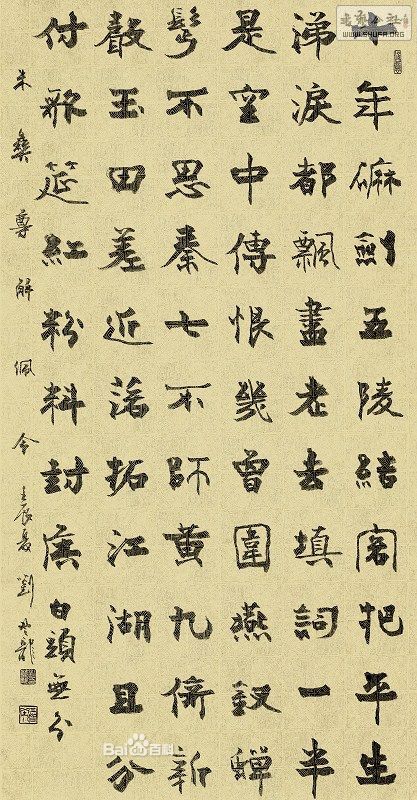 十年磨劍五陵結客把平生
涕淚都飄盡老去填詞一半
是空中傳恨幾曾圍燕釵蟬
鬢不思秦七不師黃九倚新
聲玉田差近落拓江湖且分
付歌筵紅粉料封侯白頭無分
朱彝尊解佩令壬辰夏劉
Bai百科